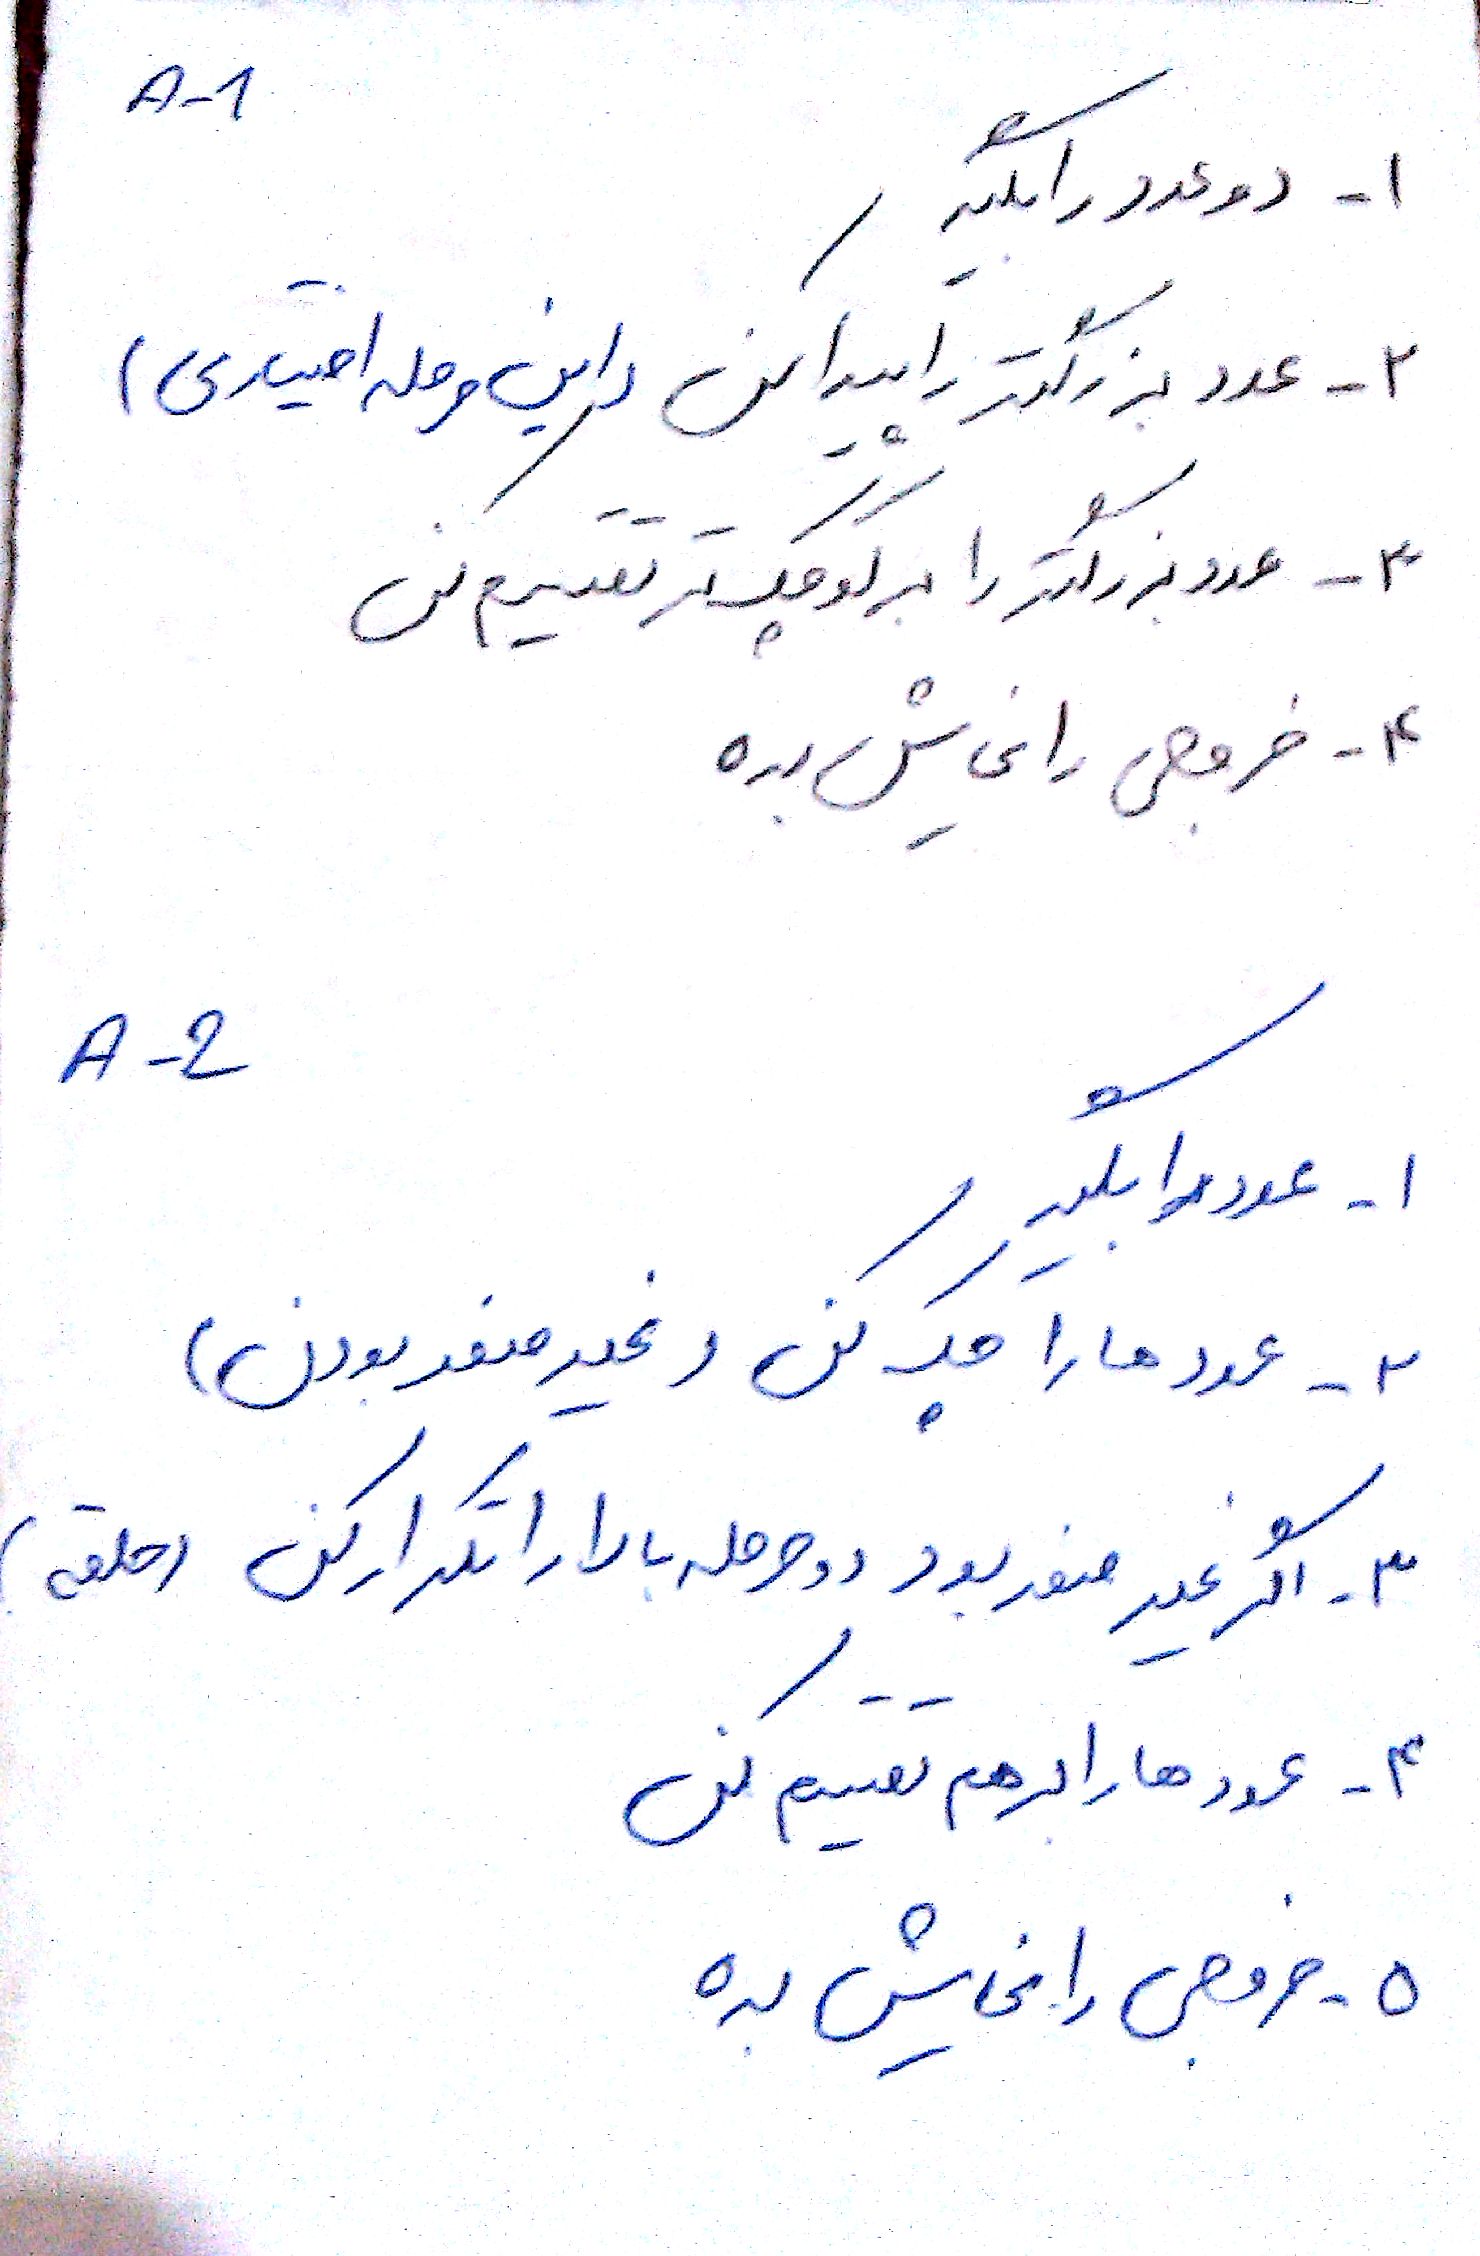 A-1
۱- دو عدد را بگیر
۲- عدد بزرگتر را پیدا کن (این مرحله اختیاری)
۳- عدد بزرگتر را بر کوچک تر تقسیم کن
۴- خروجی را نمایش بده
A-2
۱- عدد را بگیر
۲- عدد ها را چک کن (غیر صفر بودن)
۳- اگر غیر صفر بود دو مرحله بالا را تکرار کن (حلقه)
۴- عدد ها را بر هم تقسیم کن
۵- خروجی را نمایش بده